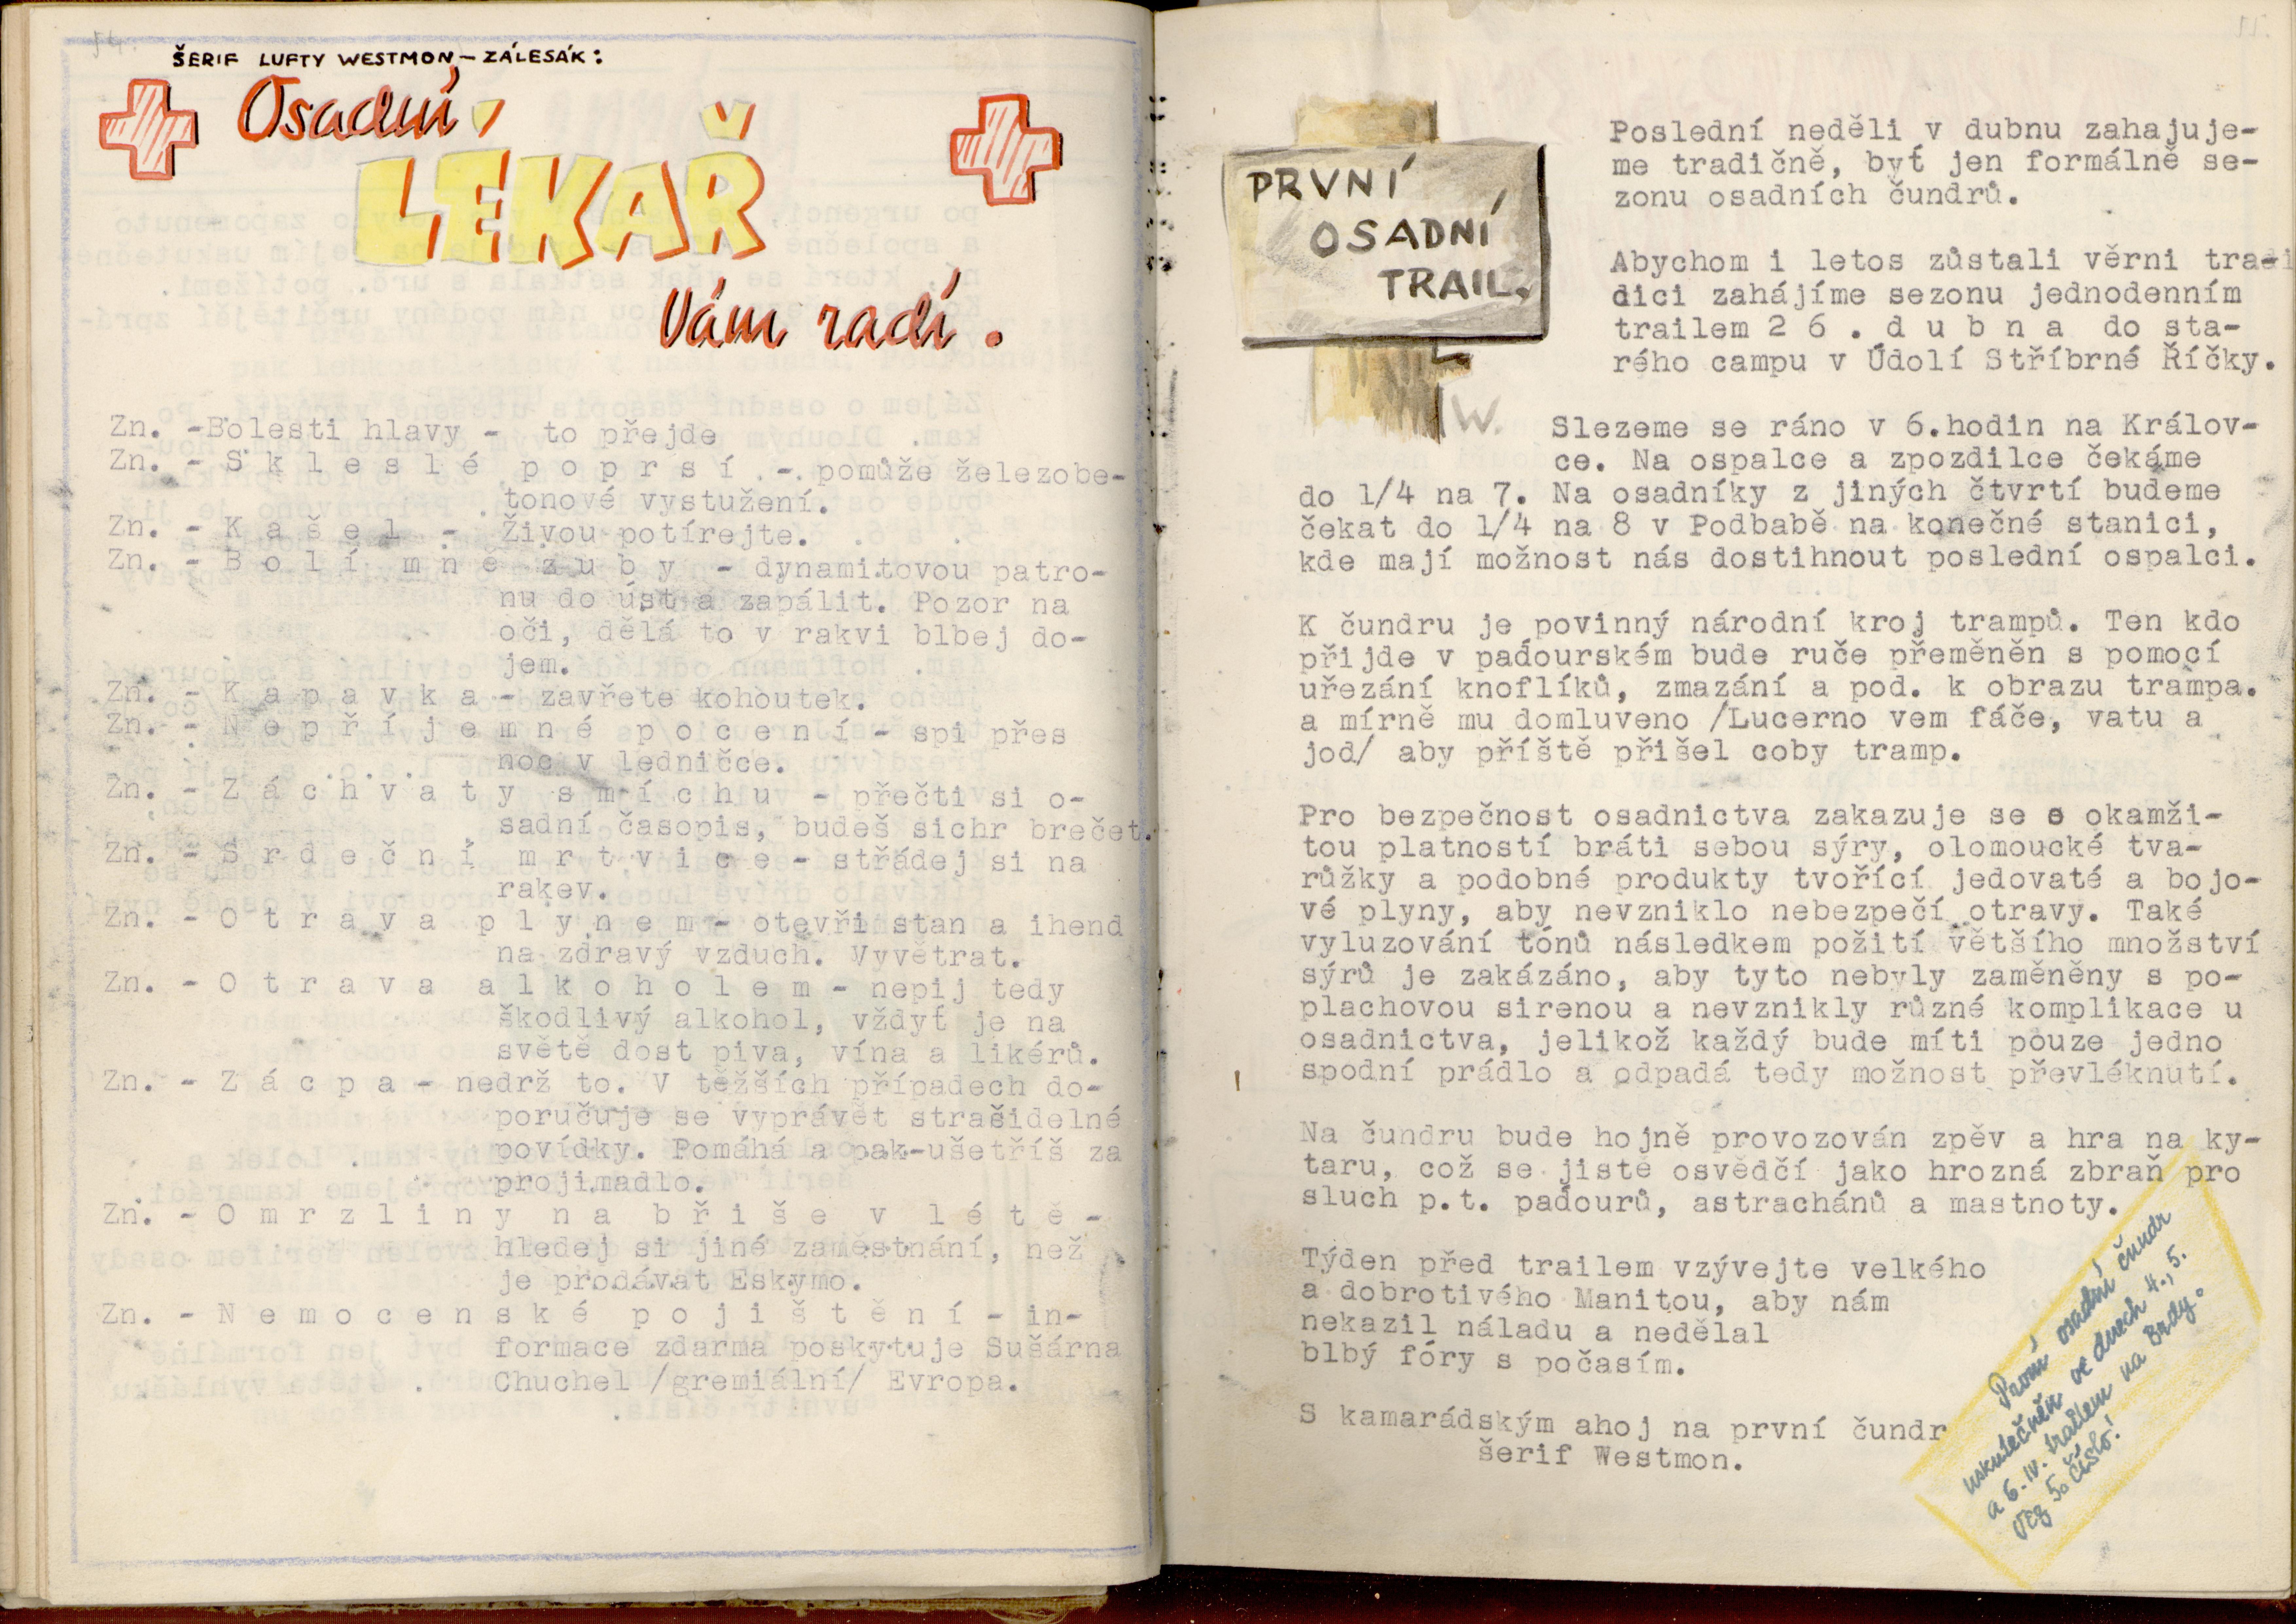 ŠERIF LUFTY WESTMON – ZÁLESÁK:
Osadní
LÉKAŘ
Vám radí.
Zn. -Bolesti hlavy - to přejde
Zn. - S k l e s l é p o p r s í - pomůže železobe-
tonové vystužení.
Zn. - K a š e l - Živou potírejte.
Zn. - B o l í m n ě z u b y - dynamitovou patro-
nu do úst a zapálit. Pozor na
oči, dělá to v rakvi blbej do-
jem.
Zn. - K a p a v k a - zavřete kohoutek.
Zn. - N e p ř í j e m n é p o c e n í - spi přes
noc v ledničce.
Zn. - Z á c h v a t y s m í c h u - přečti si o-
sadní časopis, budeš sichr brečet.
Zn. - S r d e č n í m r t v i c e - střádej si na
rakev.
Zn. - O t r a v a p l y n e m - otevři stan a ihend
na zdravý vzduch. Vyvětrat.
Zn. - O t r a v a a l k o h o l e m - nepij tedy
škodlivý alkohol, vždyť je na
světě dost piva, vína a likérů.
Zn. - Z á c p a - nedrž to. V těžších případech do-
poručuje se vyprávět strašidelné
povídky. Pomáhá a pak-ušetříš za
projimadlo.
Zn. - O m r z l i n y n a b ř i š e v l é t ě -
hledej si jiné zaměstnání, než
je prodávat Eskymo.
Zn. - N e m o c e n s k é p o j i š t ě n í - in-
formace zdarma poskytuje Sušárna
Chuchel /gremiální/ Evropa.
PRVNÍ
OSADNÍ
TRAIL.
W.
Poslední neděli v dubnu zahajuje-
me tradičně, byť jen formálně se-
zonu osadních čundrů.
Abychom i letos zůstali věrni tradi
dici zahájíme sezonu jednodenním
trailem 2 6 . d u b n a do sta-
rého campu v Údolí Stříbrné Říčky.
Slezeme se ráno v 6.hodin na Králov-
ce. Na ospalce a zpozdilce čekáme
do 1/4 na 7. Na osadníky z jiných čtvrtí budeme
čekat do 1/4 na 8 v Podbabě na konečné stanici,
kde mají možnost nás dostihnout poslední ospalci.
K čundru je povinný národní kroj trampů. Ten kdo
přijde v paďourském bude ruče přeměněn s pomocí
uřezání knoflíků, zmazání a pod. k obrazu trampa.
a mírně mu domluveno /Lucerno vem fáče, vatu a
jod/ aby příště přišel coby tramp.
Pro bezpečnost osadnictva zakazuje se s okamži-
tou platností bráti sebou sýry, olomoucké tva-
růžky a podobné produkty tvořící jedovaté a bojo-
vé plyny, aby nevzniklo nebezpečí otravy. Také
vyluzování tónů následkem požití většího množství
sýrů je zakázáno, aby tyto nebyly zaměněny s po-
plachovou sirenou a nevznikly různé komplikace u
osadnictva, jelikož každý bude míti pouze jedno
spodní prádlo a odpadá tedy možnost převléknutí.
Na čundru bude hojně provozován zpěv a hra na ky-
taru, což se jistě osvědčí jako hrozná zbraň pro
sluch p.t. paďourů, astrachánů a mastnoty.
Týden před trailem vzývejte velkého
a dobrotivého Manitou, aby nám
nekazil náladu a nedělal
blbý fóry s počasím.
S kamarádským ahoj na první čundr
šerif Westmon.
První osadní čundr
uskutečněn ve dnech 4., 5.
a 6. IV. trailem na Brdy.
Viz 5. číslo!